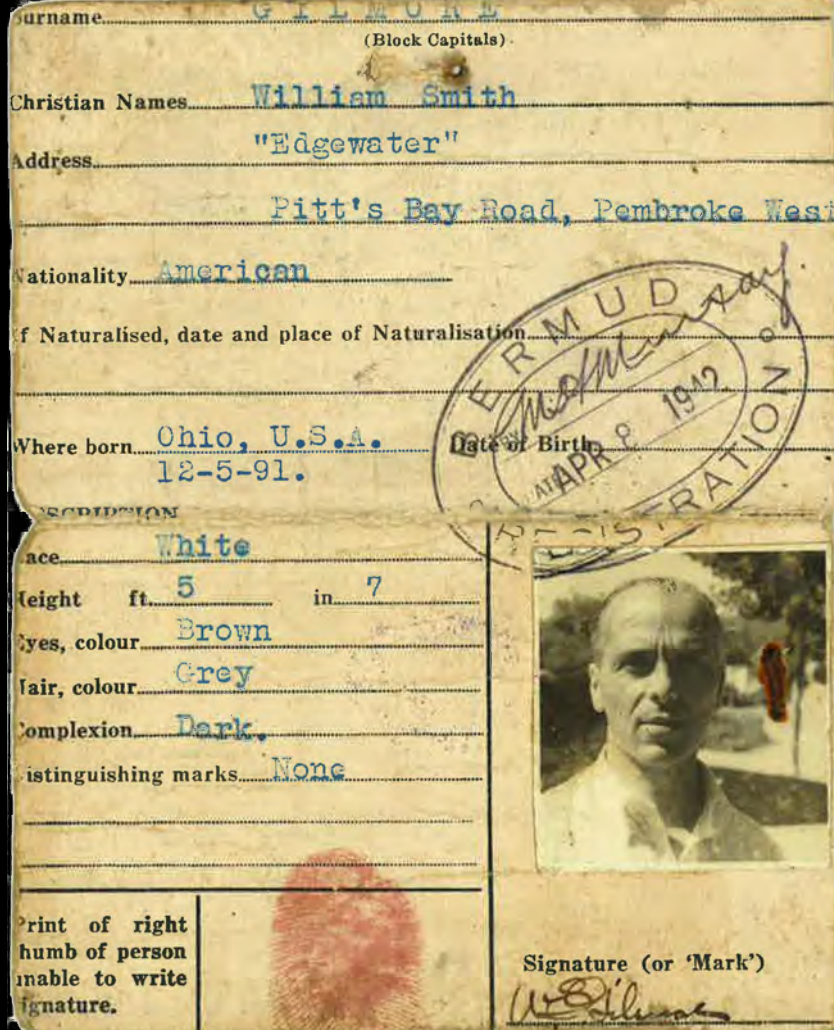 Surname GILMORE
(Block Capitals)
Christian Names William Smith
Address "Edgewater"
Pitt's Bay Road, Pembroke West
Nationality American
If Naturalised, date and place of Naturalisation
Where born Ohio, U.S.A. Date of Birth
12-5-91.
BERMUDA
APR 8 1942
REGISTRATION
DESCRIPTION
Race White
Height ft. 5 in 7
Eyes, colour Brown
Hair, colour Grey
Complexion Dark.
Distinguishing marks None
Print of right
thumb of person
unable to write
signature.
Signature (or 'Mark')